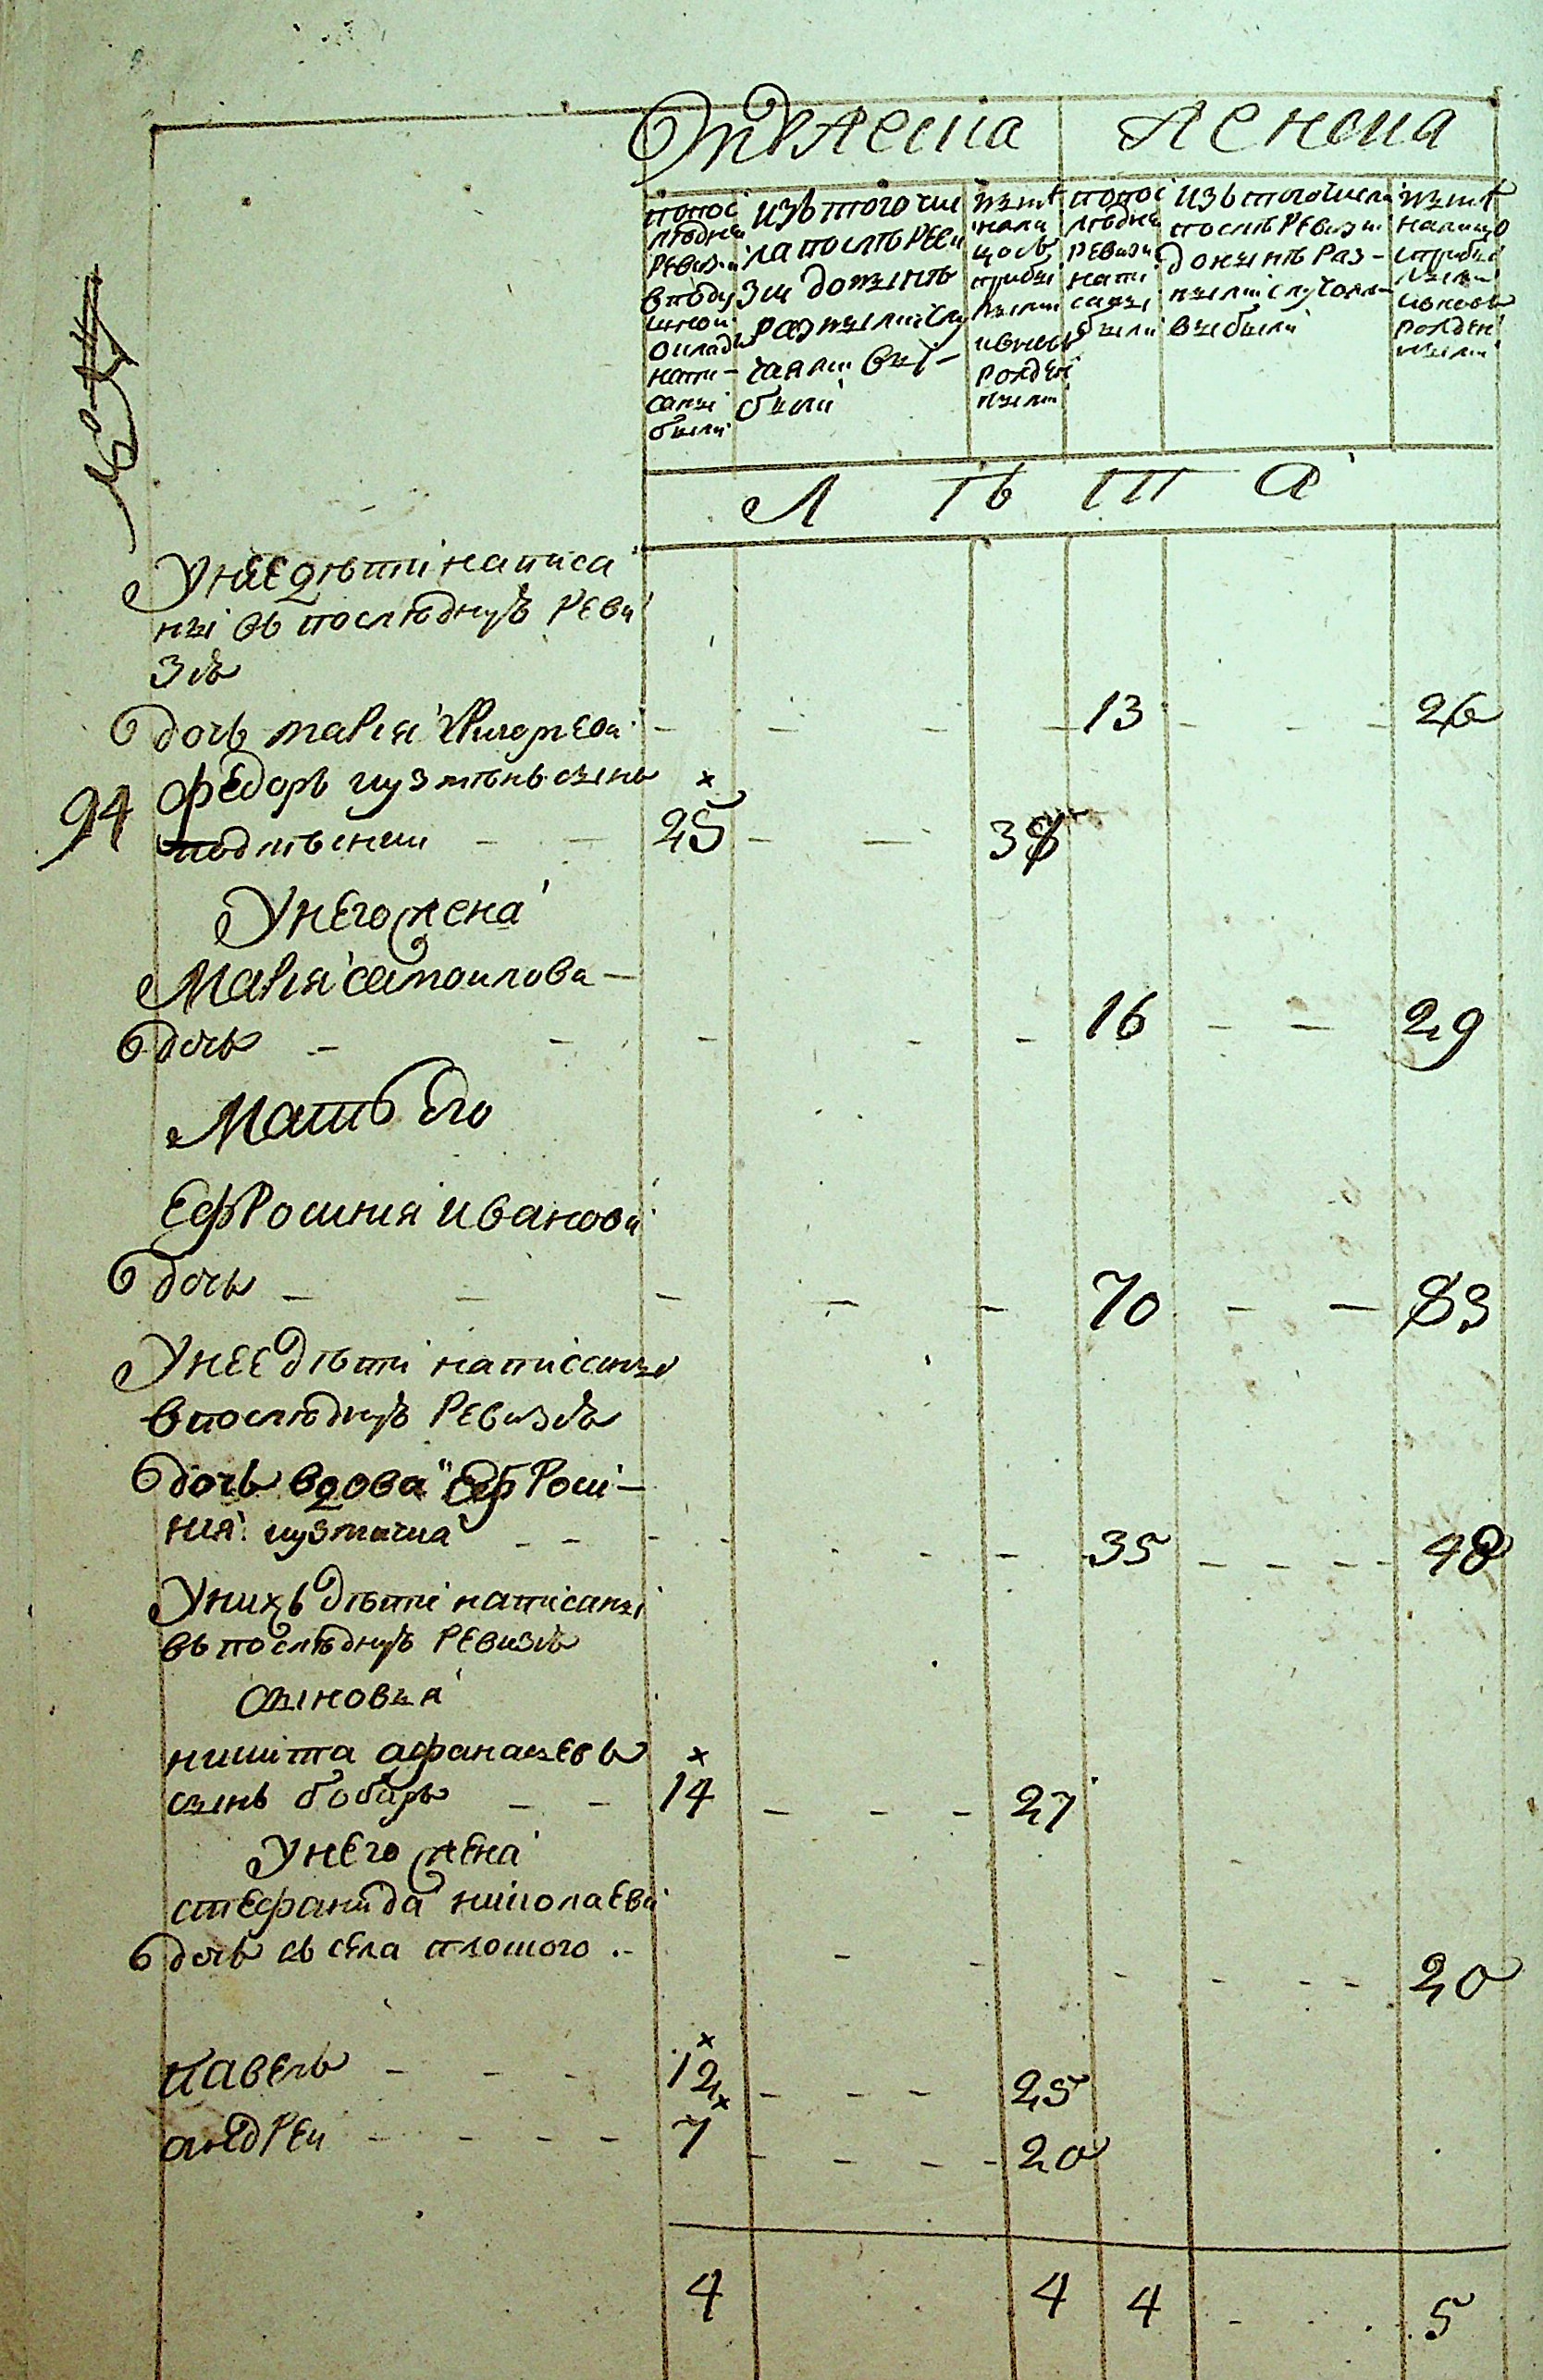 №
Мужеска
Женска
по пос
лѣдней
ревизіи
в поду
шном
окладѣ
напи-
саны
были
изъ того чи
сла послѣ реви
зіи до женнѣ
разными слу
чаями вы-
были
нынѣ
нали
цось
прибы
лыми
и вновь
рожден
ными
по пос
лѣдней
ревизи
напи
саны
были
изъ того числа
послѣ ревизи
до ненѣ раз-
ными случая-
ми выбыли
нынѣ
налицо
с прибы
лыми
и вновь
рожден
ными
Л ѣ т а
У нее дѣти написа
ны въ послѣднуѣ реви
зіѣ
дочь марія григорьева 13 26
94 федоръ кузминъ сынъ
подлѣсний 25 38
У него жена
Марія самоилова
дочь 16 29
Мать его
Ефросиния иванова
дочь 70 83
У нее дѣти написаны
в послѣднуѣ ревизіѣ
дочь вдова Ефроси-
ния кузмина 35 48
У нихъ дѣти написаны
въ послѣднуѣ ревизіѣ
сыновья
никита афанасьевъ
сынъ бобырь 14 27
У него жена
стефанида николаева
дочь съ села плоского 20
павелъ 12 25
андрей 7 20
4 4 4 5